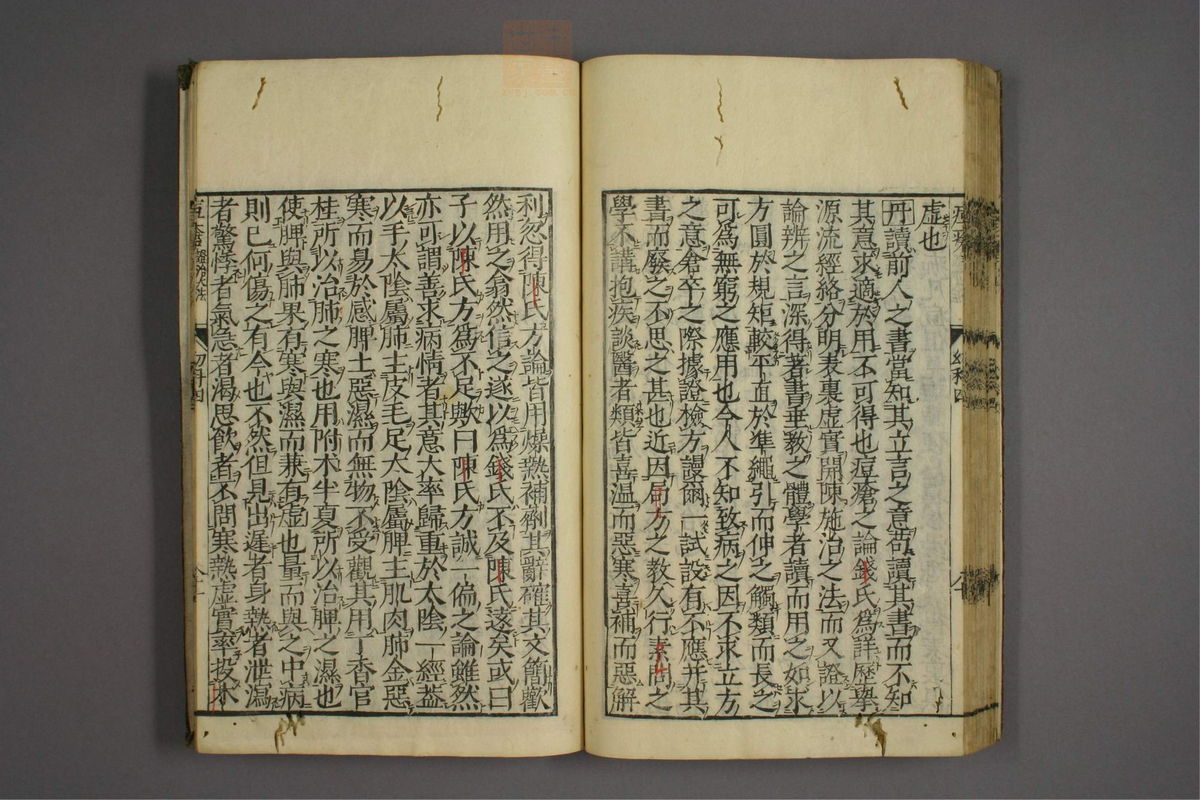 虛也
丹讀前人之書當知其立言之意苟讀其書而不知
其意求適於用不可得也痘瘡之論錢氏爲詳歷擧
源流經絡分明表裏虛實開陳施治之法而又證以
論辨之言深得著書垂敎之體學者讀而用之如求
方圓於規矩較平直於準繩引而伸之觸類而長之
可爲無窮之應用也今人不知致病之因不求立方
之意倉卒之際據證檢方謾爾一試設有不應并其
書而廢之不思之甚也近因局方之敎久行素問之
學不講抱疾談醫者類皆喜温而惡寒喜補而惡解
利忽得陳氏方論皆用燥熱補劑其辭確其文簡歡
然用之翕然信之遂以爲錢氏不及陳氏遠矣或曰
子以陳氏方爲不足歟曰陳氏方誠一偏之論雖然
亦可謂善求病情者其意大率歸重於太陰一經蓋
以手太陰屬肺主皮毛足太陰屬脾主肌肉肺金惡
寒而易於感脾土惡濕而無物不受觀其用丁香官
桂所以治肺之寒也用附朮半夏所以治脾之濕也
使脾與肺果有寒與濕而兼有虛也量而與之中病
則已何傷之有今也不然但見出遲者身熱者泄瀉
者驚悸者氣急者渴思飲者不問寒熱虛實率投木
幼科四